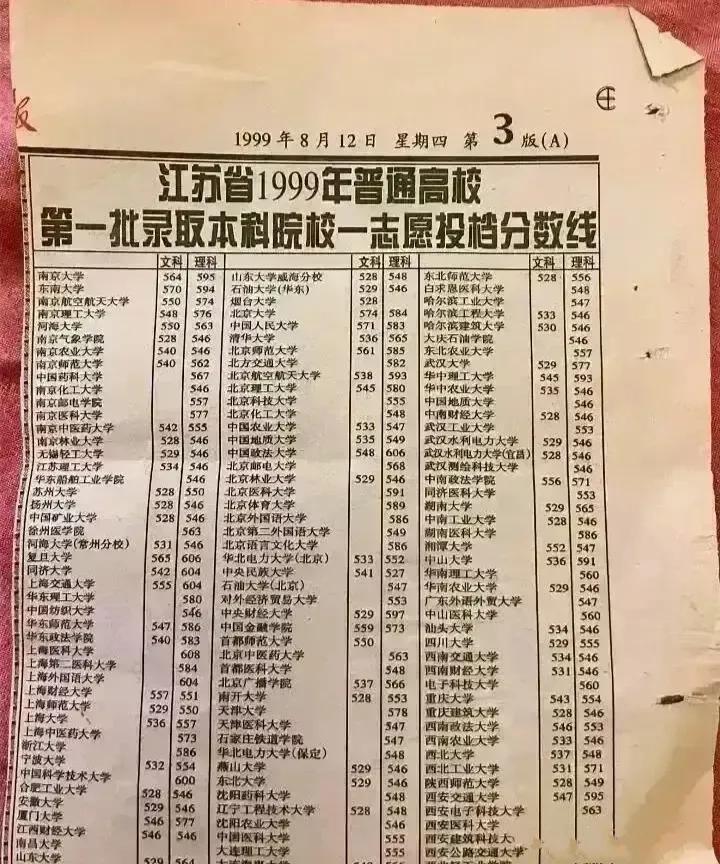 1999年8月12日 星期四 第3版(A)
江苏省1999年普通高校
第一批录取本科院校一志愿投档分数线
文科 理科
南京大学 564 595
东南大学 570 594
南京航空航天大学 550 574
南京理工大学 548 576
河海大学 550 563
南京气象学院 528 546
南京农业大学 540 546
南京师范大学 540 562
中国药科大学 567
南京化工大学 546
南京邮电学院 557
南京医科大学 577
南京中医药大学 542 555
南京林业大学 528 546
无锡轻工大学 529 546
江苏理工大学 534 546
华东船舶工业学院 546
苏州大学 528 550
扬州大学 528 546
中国矿业大学 528 546
徐州医学院 563
河海大学(常州分校) 531 546
复旦大学 565 606
同济大学 542 604
上海交通大学 555 604
华东理工大学 580
中国纺织大学 546
华东师范大学 547 586
华东政法学院 540 583
上海医科大学 608
上海第二医科大学 584
上海外国语大学 604
上海财经大学 557 551
上海师范大学 529 550
上海大学 536 557
上海中医药大学 573
浙江大学 586
宁波大学 532 554
中国科学技术大学 600
合肥工业大学 528 546
安徽大学 529 546
厦门大学 546 577
江西财经大学 546 546
南昌大学
山东大学 529 564
文科 理科
山东大学威海分校 528 548
石油大学(华东) 529 546
烟台大学 528
北京大学 574 584
中国人民大学 571 583
清华大学 536 565
北京师范大学 561 585
北方交通大学 582
北京航空航天大学 538 593
北京理工大学 545 580
北京科技大学 555
北京化工大学 548
中国农业大学 533 547
中国地质大学 535 549
中国政法大学 548 606
北京邮电大学 568
北京林业大学 529 546
北京医科大学 591
北京体育大学 589
北京外国语大学 586
北京第二外国语大学 549
北京语言文化大学 586
华北电力大学(北京) 533 552
中央民族大学 541 527
石油大学(北京) 547
对外经济贸易大学 553
中央财经大学 529 597
中国金融学院 559 573
首都师范大学 550
北京中医药大学 563
首都医科大学 548
北京广播学院 537 566
南开大学 528 553
天津大学 578
天津医科大学 547
石家庄铁道学院 547
华北电力大学(保定) 548
燕山大学 529 546
东北大学 529 546
沈阳药科大学 548
辽宁工程技术大学 528 548
沈阳农业大学 546
中国医科大学 555
大连理工大学 555
文科 理科
东北师范大学 528 556
白求恩医科大学 548
哈尔滨工业大学 547
哈尔滨工程大学 533 546
哈尔滨建筑大学 530 546
大庆石油学院 546
东北农业大学 557
武汉大学 529 577
华中理工大学 545 593
华中农业大学 535 546
中国地质大学 546
中南财经大学 528 546
武汉工业大学 553
武汉水利电力大学 529 546
武汉水利电力大学(宜昌) 528 546
武汉测绘科技大学 546
中南政法学院 556 571
同济医科大学 553
湖南大学 529 565
中南工业大学 528 546
湖南医科大学 586
湘潭大学 552 547
中山大学 536 591
华南理工大学 560
华南农业大学 529 546
广东外语外贸大学 547
中山医科大学 560
汕头大学 534 546
四川大学 529 555
西南交通大学 534 546
西南财经大学 531 546
电子科技大学 560
重庆大学 543 554
重庆建筑大学 528 546
西南政法大学 546 553
西南农业大学 533 546
西北大学 537 548
西北工业大学 531 571
陕西师范大学 528 549
西安交通大学 547 595
西安电子科技大学 563
西安医科大学
西安建筑科技大
西安公路交通大学